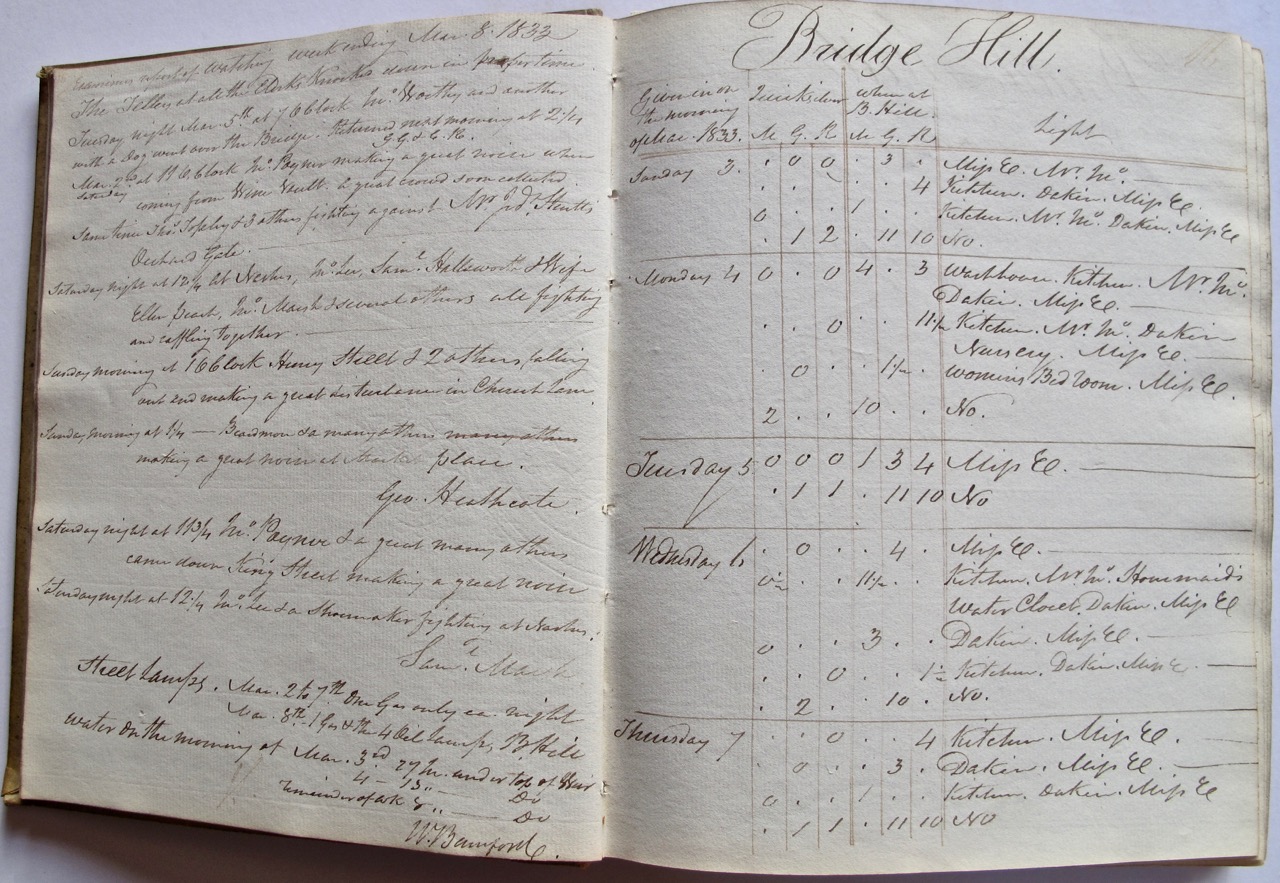 Examiners report of watching week ending Mar. 8. 1833
The Tellers at all the Clocks Knocked down in proper time.
Tuesday night Mar. 5th at 7 OClock Wm. Worthy and another
with a Dog went over the Bridge. Returned next morning at 2 1/4
G.G. & C.K.
Mar. 2nd at 11 OClock Wm. Paynor making a great noise when
Saturday
coming from Wine Vault. a great crowd soon collected.
Same time Thos. Topley & 3 others fighting against Mr. Jed. Strutts
Orchard Gate.
Saturday night at 12 1/4 at Nashs, Wm. Lee, Saml. Hallsworth & Wife
Ellen Peach, Wm. Marsh & several others all fighting
and caffling together.
Sunday morning at 1 OClock Henry Street & 2 others falling
out and making a great disturbance in Church Lane.
Sunday morning at 1/4 — Beardmore & many others many others
making a great noise at Market place.
Geo. Heathcote.
Saturday night at 11 3/4 Wm. Paynor & a great many others
came down King Street making a great noise
Sunday night at 12 1/4 Wm. Lee & a Shoemaker fighting at Nashs.
Saml. Marsh
Street Lamps. Mar. 2 to 7th One Gas only ea. night
Mar. 8th 1 Gas & the 4 Oil Lamps, B. Hill
Water on the morning of Mar. 3rd 27 In. under top of Weir
4 — 15 " — Do
remainder of wk 8 " — Do
W. Bamford.
Bridge Hill.
46
Given in on Quicksilver when at
the morning B. Hill
of Mar. 1833. M G. R M G. R Light
Sunday 3. . 0 0 . 3 . Miss E. Mr. Wm.
. . . . . 4 Kitchen. Dakin. Miss E.
0 . . 1 . . Kitchen. Mr. Wm. Dakin. Miss E
. 1 2 . 11 10 No.
Monday 4 0 . 0 4 . 3 Washhouse. Kitchen. Mr. Wm.
Dakin. Miss E.
. . 0 . . 11 1/2 Kitchen. Mr. Wm. Dakin
Nursery. Miss E.
. 0 . . 1 1/2 . Womens Bed room. Miss E.
2 . . 10 . . No.
Tuesday 5 0 0 0 1 3 4 Miss E.
. 1 1 . 11 10 No
Wednesday 6 . 0 . . 4 . Miss E.
0 1/2 . . 11 1/2 . . Kitchen. Mr. Wm. Housemaids
Water Closet. Dakin. Miss E
0 . . 3 . . Dakin. Miss E.
. . 0 . . 1 1/2 Kitchen. Dakin. Miss E.
. 2 . . 10 . No.
Thursday 7 . . 0 . . 4 Kitchen. Miss E.
. 0 . . 3 . Dakin. Miss E.
0 . . 1 . . Kitchen. Dakin. Miss E
. 1 1 . 11 10 No